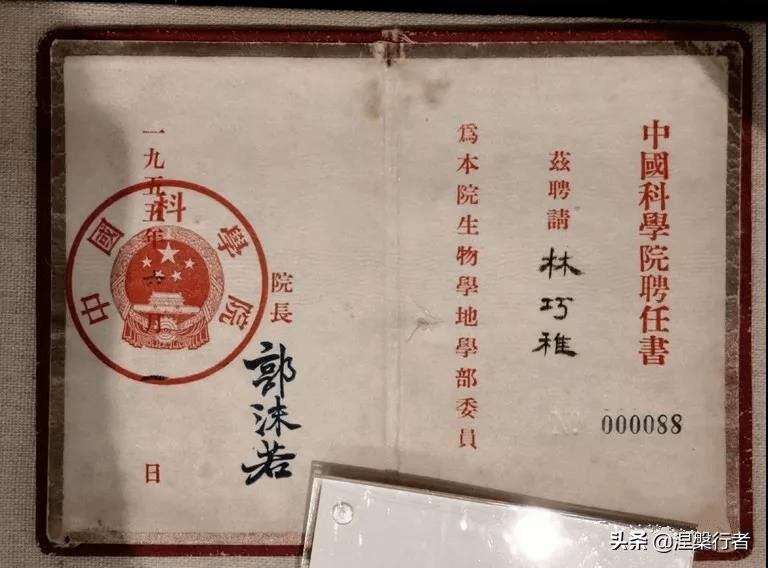 中國科學院聘任書
茲聘請 林巧稚
爲本院生物學地學部委員
№ 000088
院長
郭沫若
一九五五年六月一日
中國科學院
头条 @涅槃行者